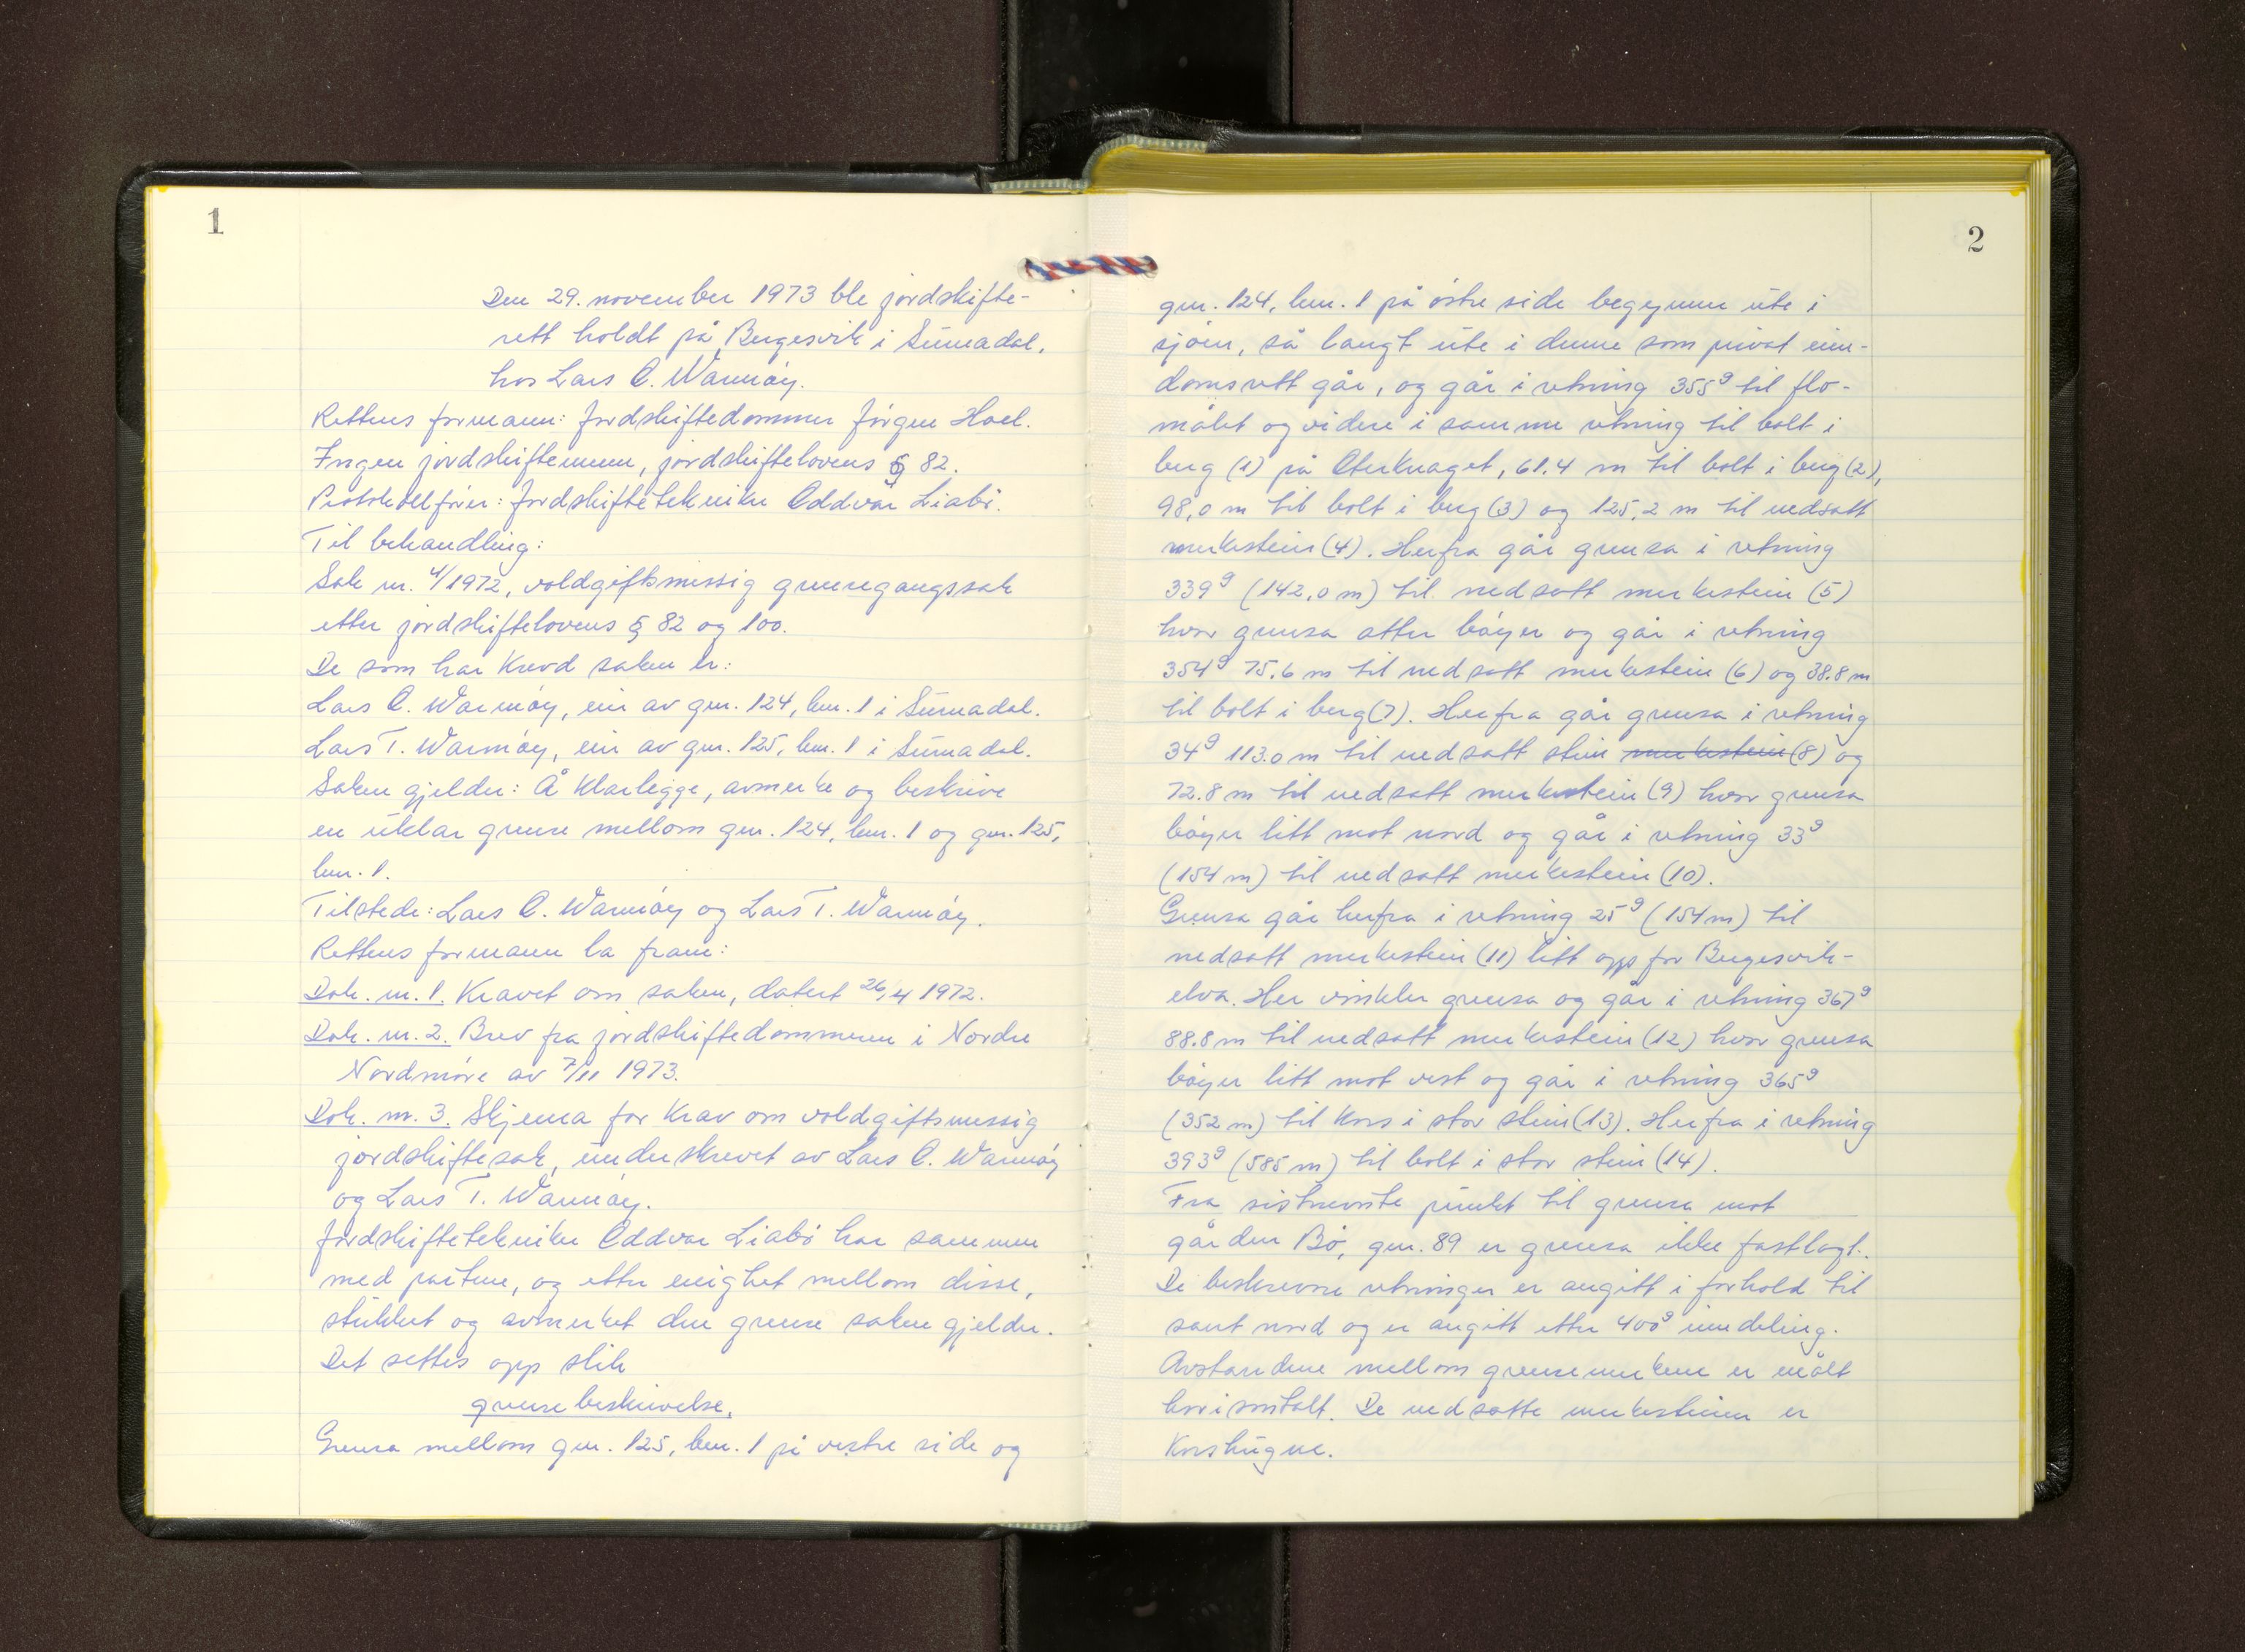 1
Den 29. november 1973 ble jordskifte-
rett holdt på Bergesvik i Surnadal,
hos Lars O. Warmøy.
Rettens formann: Jordskiftedommer Jørgen Hoel.
Ingen jordskiftemenn, jordskiftelovens § 82.
Protokollfører: Jordskiftetekniker Oddvar Liabø.
Til behandling:
Sak nr. 4/1972, voldgiftsmessig grensegangssak
etter jordskiftelovens § 82 og 100.
De som har krevd saken er:
Lars O. Warmøy, eier av gnr. 124, bnr. 1 i Surnadal.
Lars T. Warmøy, eier av gnr. 125, bnr. 1 i Surnadal.
Saken gjelder: Å klarlegge, avmerke og beskrive
en uklar grense mellom gnr. 124, bnr. 1 og gnr. 125,
bnr. 1.
Tilstede: Lars O. Warmøy og Lars T. Warmøy.
Rettens formann la fram:
Dok. nr. 1. Kravet om saken, datert 26/4 1972.
Dok. nr. 2. Brev fra jordskiftedommeren i Nordre
Nordmøre av 7/11 1973.
Dok. nr. 3. Skjema for krav om voldgiftsmessig
jordskiftesak, underskrevet av Lars O. Warmøy
og Lars T. Warmøy.
Jordskiftetekniker Oddvar Liabø har sammen
med partene, og etter enighet mellom disse,
stukket og avmerket den grense saken gjelder.
Det settes opp slik
grensebeskrivelse,
Grensa mellom gnr. 125, bnr. 1 på vestre side og
2
gnr. 124, bnr. 1 på østre side begynner ute i
sjøen, så langt ute i denne som privat eien-
domsrett går, og går i retning 355g til flo-
målet og videre i samme retning til bolt i
berg (1) på Oterknaget, 61.4 m til bolt i berg (2),
98,0 m til bolt i berg (3) og 125,2 m til nedsatt
merkestein (4). Herfra går grensa i retning
339g (142,0 m) til nedsatt merkestein (5)
hvor grensa atter bøyer og går i retning
354g 75.6 m til nedsatt merkestein (6) og 38.8 m
til bolt i berg (7). Herfra går grensa i retning
34g 113.0 m til nedsatt stein merkestein (8) og
72.8 m til nedsatt merkestein (9) hvor grensa
bøyer litt mot nord og går i retning 33g
(154 m) til nedsatt merkestein (10).
Grensa går herfra i retning 25g (154 m) til
nedsatt merkestein (11) litt opp for Bergesvik-
elva. Her vinkler grensa og går i retning 367g
88.8 m til nedsatt merkestein (12) hvor grensa
bøyer litt mot vest og går i retning 365g
(352 m) til kors i stor stein (13). Herfra i retning
393g (585 m) til bolt i stor stein (14).
Fra sistnevnte punkt til grensa mot
gården Bø, gnr. 89 er grensa ikke fastlagt.
De beskrevne retninger er angitt i forhold til
sant nord og er angitt etter 400g inndeling.
Avstandene mellom grensemerkene er målt
horisontalt. De nedsatte merkesteiner er
korshugne.